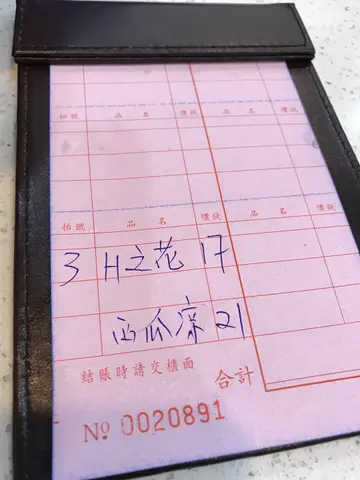 枱號 品名 價銀 品名 價銀
枱號 品名 價銀 品名 價銀
3 H之花 17
西瓜凉 21
結賬時請交櫃面 合計
№ 0020891